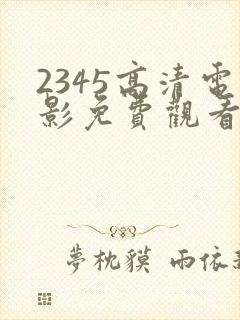 2345高清電
影免費觀看
夢枕貘 雨依